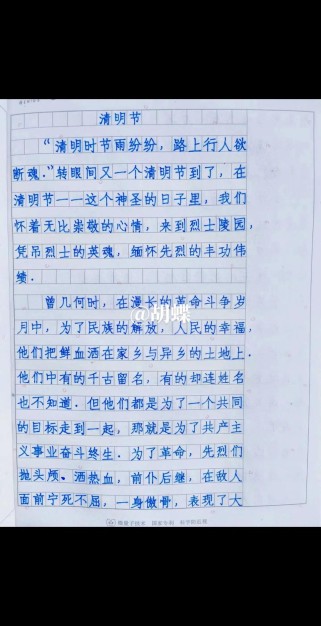 清明节
“清明时节雨纷纷，路上行人欲
断魂.”转眼间又一个清明节到了，在
清明节——这个神圣的日子里，我们
怀着无比崇敬的心情，来到烈士陵园，
凭吊烈士的英魂，缅怀先烈的丰功伟
绩.
曾几何时，在漫长的革命斗争岁
@胡蝶
月中，为了民族的解放，人民的幸福，
他们把鲜血洒在家乡与异乡的土地上.
他们中有的千古留名，有的却连姓名
也不知道.但他们都是为了一个共同
的目标走到一起，那就是为了共产主
义事业奋斗终生.为了革命，先烈们
抛头颅、洒热血，前仆后继，在敌人
面前宁死不屈，一身傲骨，表现了大